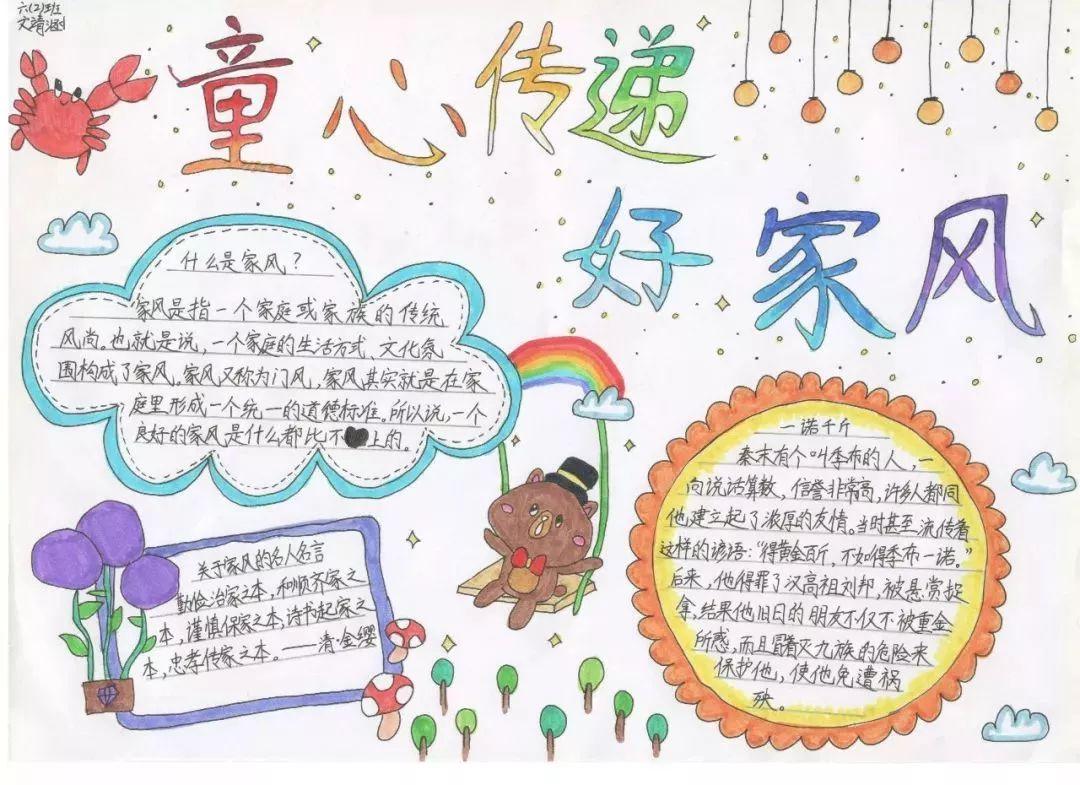 六(2)班
文靖涵
童心传递
好家风
什么是家风？
家风是指一个家庭或家族的传统
风尚。也就是说，一个家庭的生活方式、文化氛
围构成了家风。家风又称为门风，家风其实就是在家
庭里形成一个统一的道德标准。所以说，一个
良好的家风是什么都比不上的。
关于家风的名人名言
勤俭治家之本，和顺齐家之
本，谨慎保家之本，诗书起家之
本，忠孝传家之本。——清·金缨
一诺千斤
秦末有个叫季布的人，一
向说话算数，信誉非常高，许多人都同
他建立起了浓厚的友情。当时甚至流传着
这样的谚语：“得黄金百斤，不如得季布一诺。”
后来，他得罪了汉高祖刘邦，被悬赏捉
拿，结果他旧日的朋友不仅不被重金
所惑，而且冒着灭九族的危险来
保护他，使他免遭祸
殃。